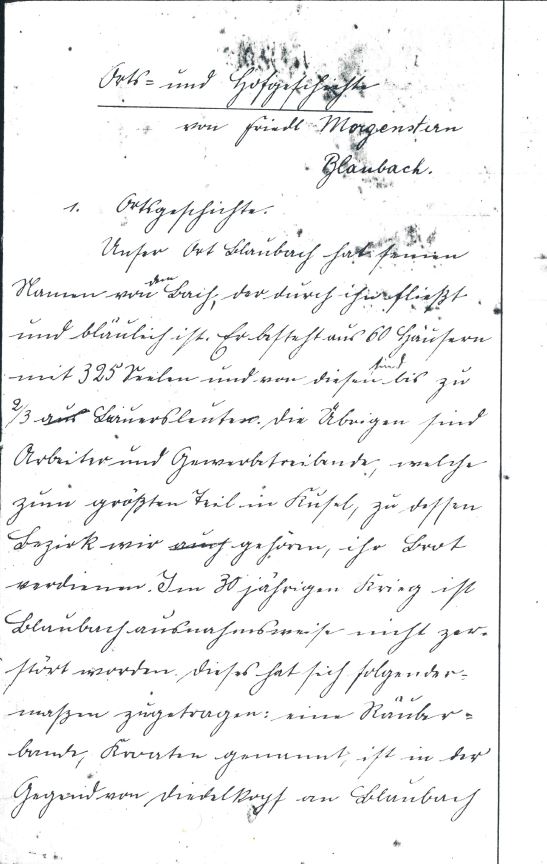 Orts- und Hofgeschichte
von Friedl Morgenstern
Blaubach.
1. Ortsgeschichte.
Unser Ort Blaubach hat seinen
Namen von dem Bach, der durch ihn fließt
und bläulich ist. Er besteht aus 60 Häusern
mit 325 Seelen und von diesen sind bis zu
2/3 aus Bauersleuten. Die Übrigen sind
Arbeiter und Gewerbetreibende, welche
zum größten Teil in Kusel, zu dessen
Bezirk wir auch gehören, ihr Brot
verdienen. Im 30 jährigen Krieg ist
Blaubach ausnahmsweise nicht zer-
stört worden. Dieses hat sich folgender-
maßen zugetragen: eine Räuber-
bande, Kroaten genannt, ist in der
Gegend von Diedelkopf an Blaubach